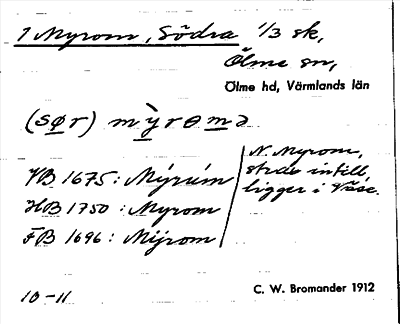 1 Myrom, Södra 1/3 sk,
Ölme sn,
Ölme hd, Värmlands län
(sør) mỳromə
N. Myrom,
strax intill,
ligger i Väse.
JB 1675: Mÿrúm
HB 1750: Myrom
FB 1696: Mÿrom
10-11
C. W. Bromander 1912